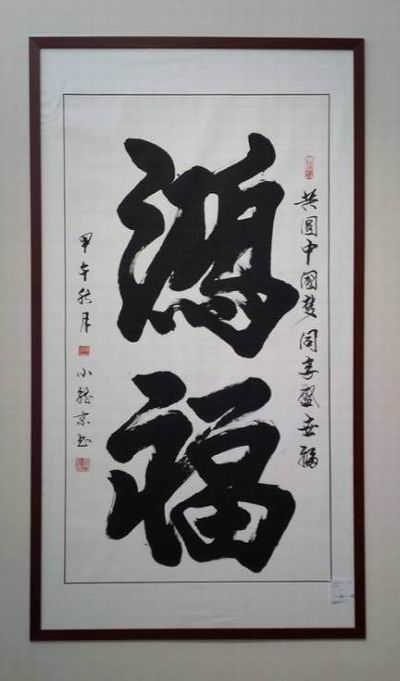 共圆中国梦同享盛世福
鸿福
甲午秋月
小龙京书